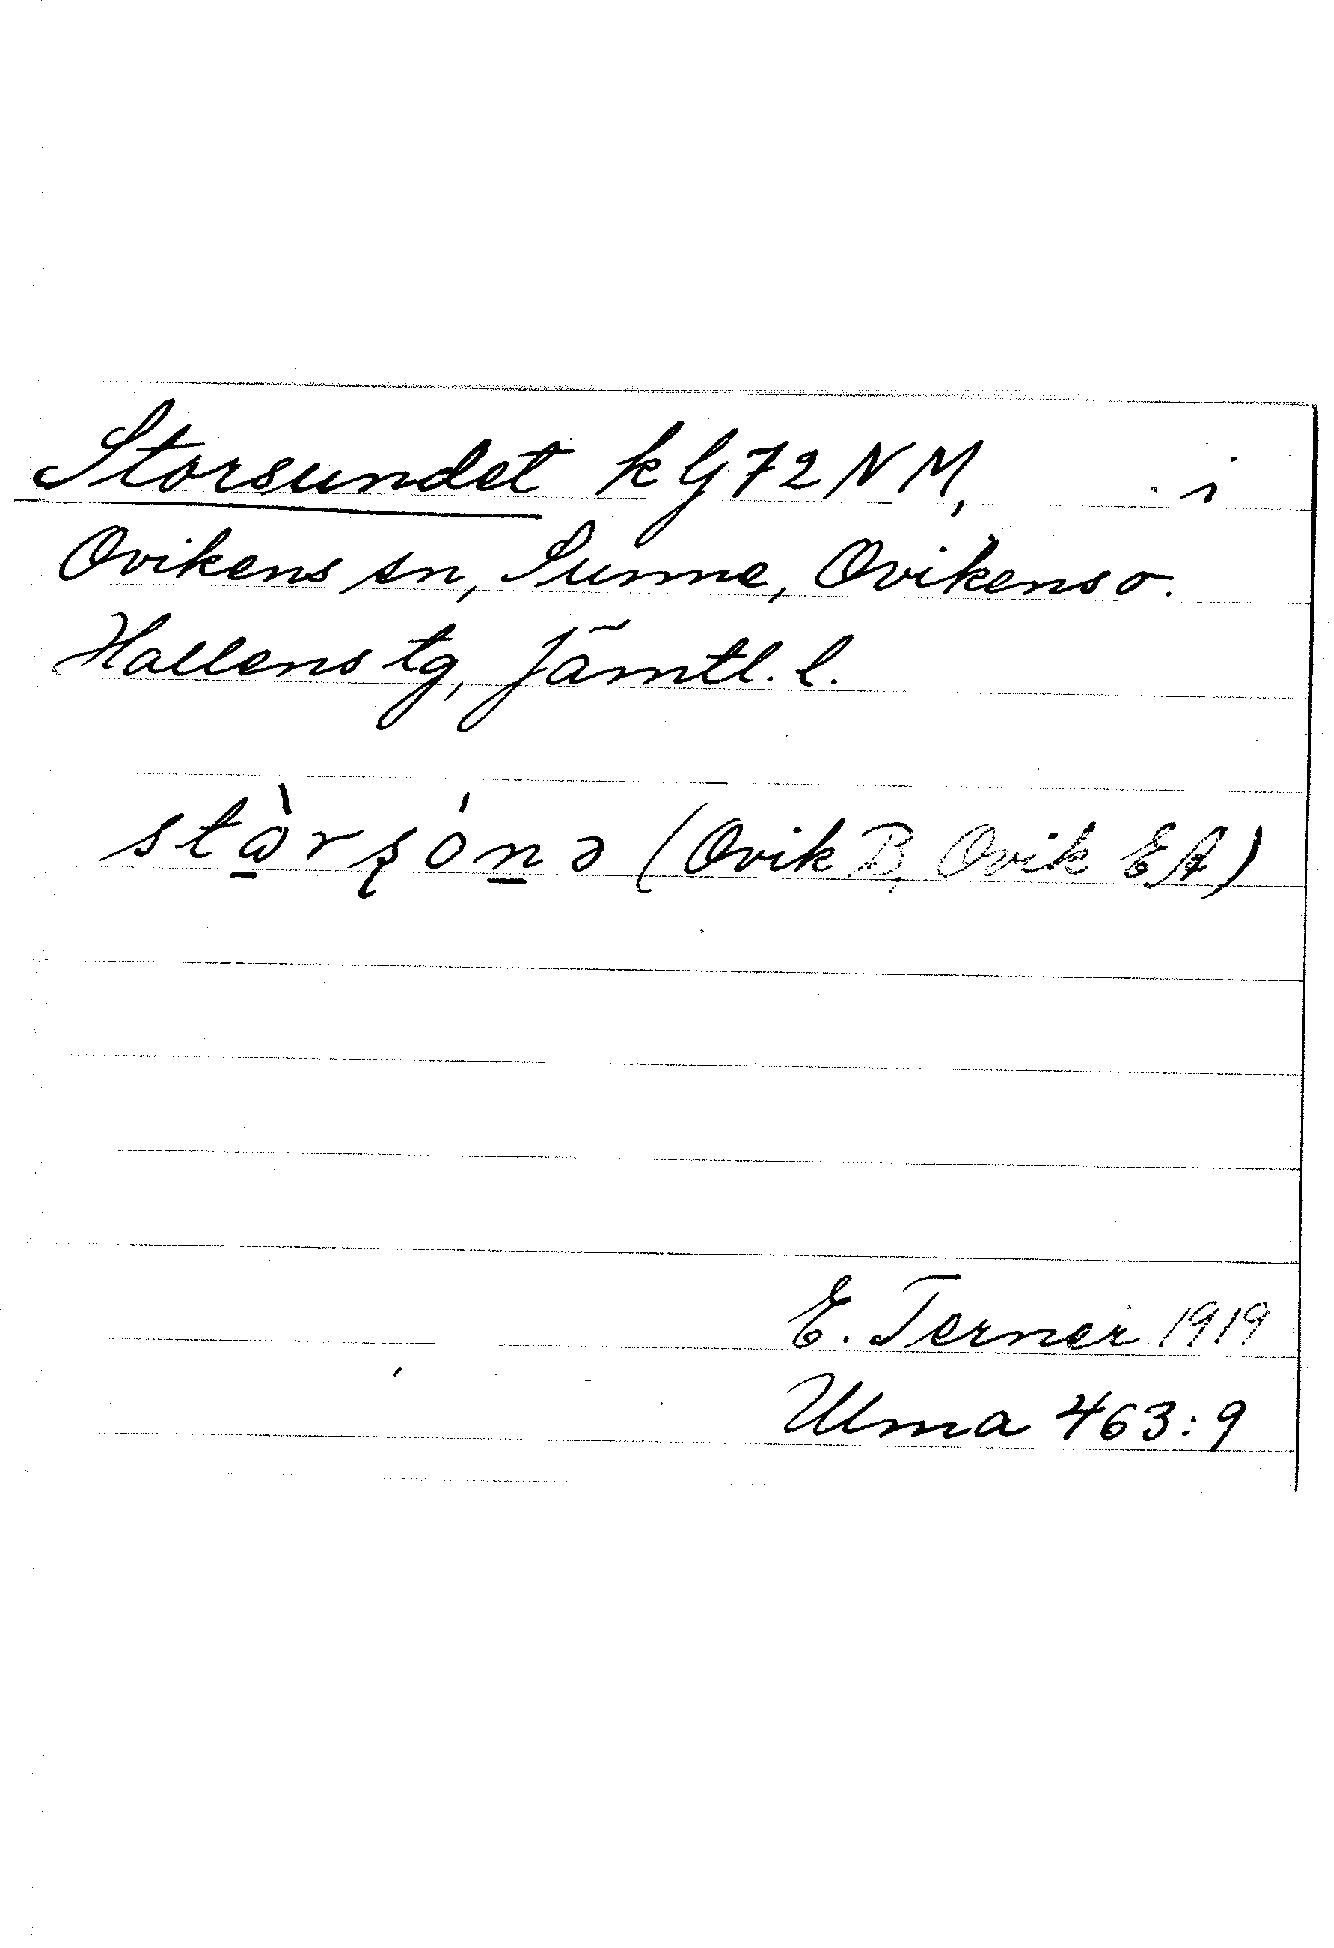 Storsundet k G 72 N M, i
Ovikens sn, Sunne, Ovikens o.
Hallens tg, Jämtl. l.
stɷ̀rʂónə (Ovik B, Ovik EA)
E. Terner 1919
Ulma 463:9